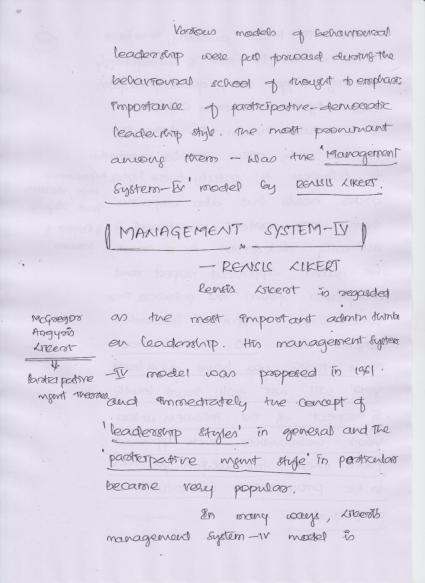 Various models of behavioural
leadership were put forward during the
behavioural school of thought to emphasis
importance of participative-democratic
leadership style. The most prominant
among them - was the 'Management
System-IV' model by RENSIS LIKERT.
MANAGEMENT SYSTEM-IV
- RENSIS LIKERT
Rensis Likert is regarded
as the most important admin thinker
on leadership. His management system
-IV model was proposed in 1961.
and immediately the concept of
'leadership styles' in general and the
'participative mgmt style' in particular
became very popular.
In many ways, Likert's
management system-IV model is
McGregor
Argyris
Likert
Participative
mgmt theories